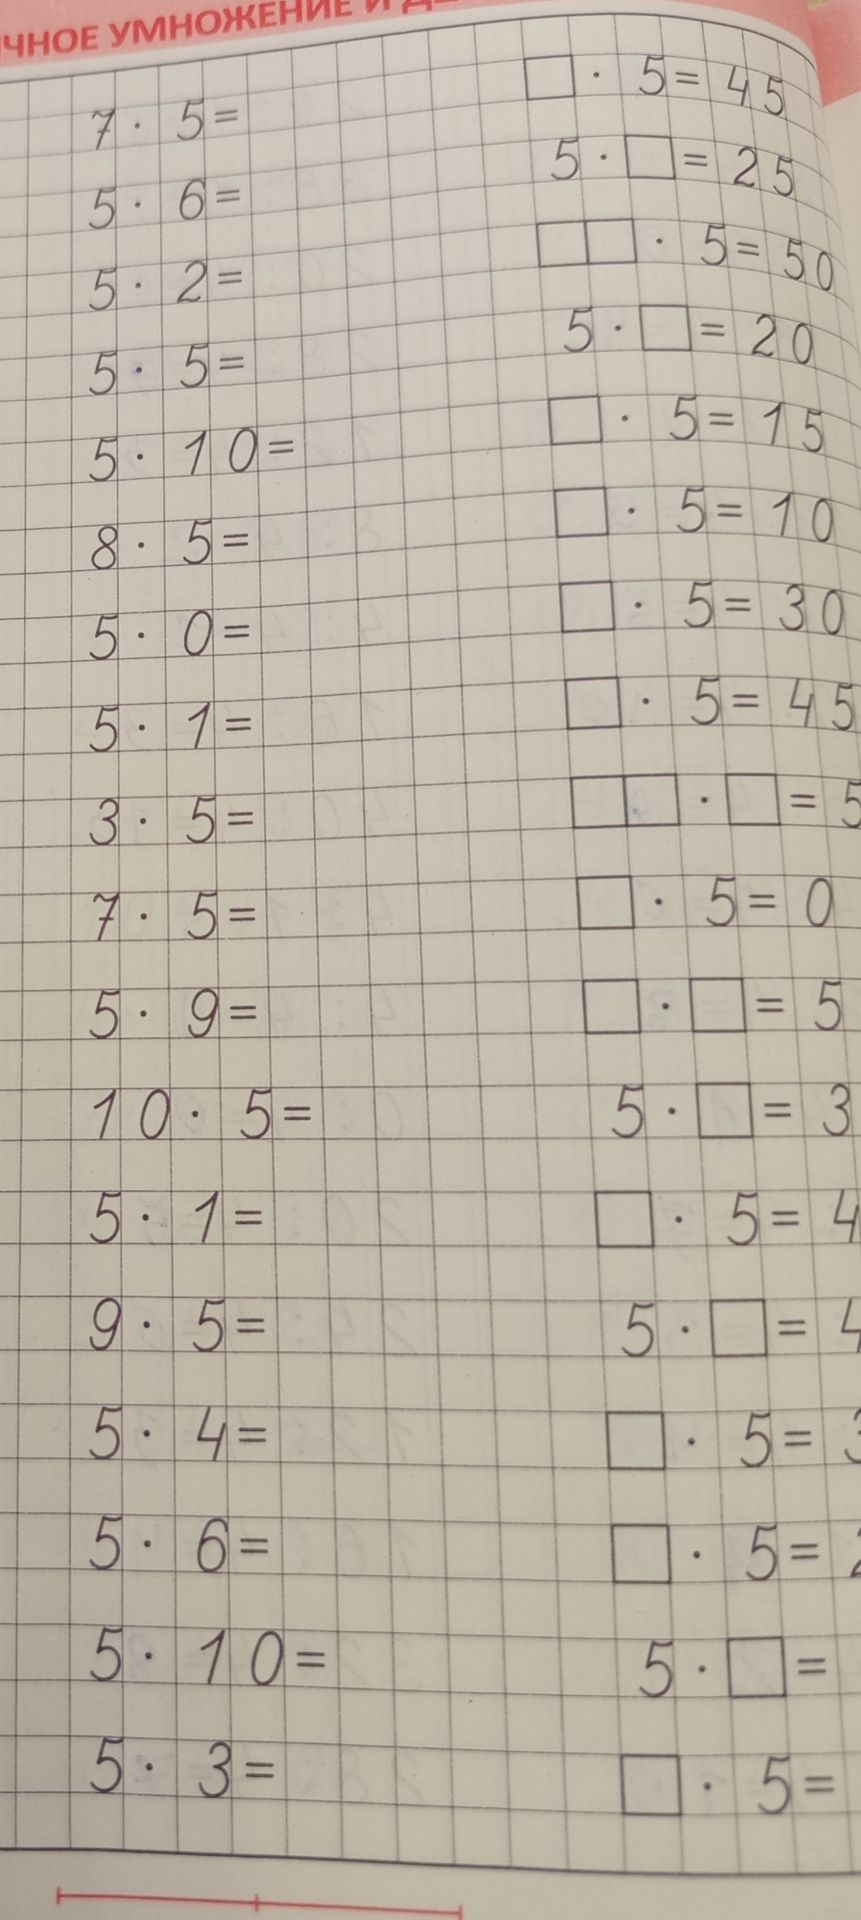 УМНОЖЕНИЕ И
7 · 5 =
5 · 6 =
5 · 2 =
5 · 5 =
5 · 10 =
8 · 5 =
5 · 0 =
5 · 1 =
3 · 5 =
7 · 5 =
5 · 9 =
10 · 5 =
5 · 1 =
9 · 5 =
5 · 4 =
5 · 6 =
5 · 10 =
5 · 3 =
□ · 5 = 45
5 · □ = 25
□□ · 5 = 50
5 · □ = 20
□ · 5 = 15
□ · 5 = 10
□ · 5 = 30
□ · 5 = 45
□□ · □ = 5
□ · 5 = 0
□ · □ = 5
5 · □ = 3
□ · 5 = 4
5 · □ = 4
□ · 5 =
□ · 5 =
5 · □ =
□ · 5 =